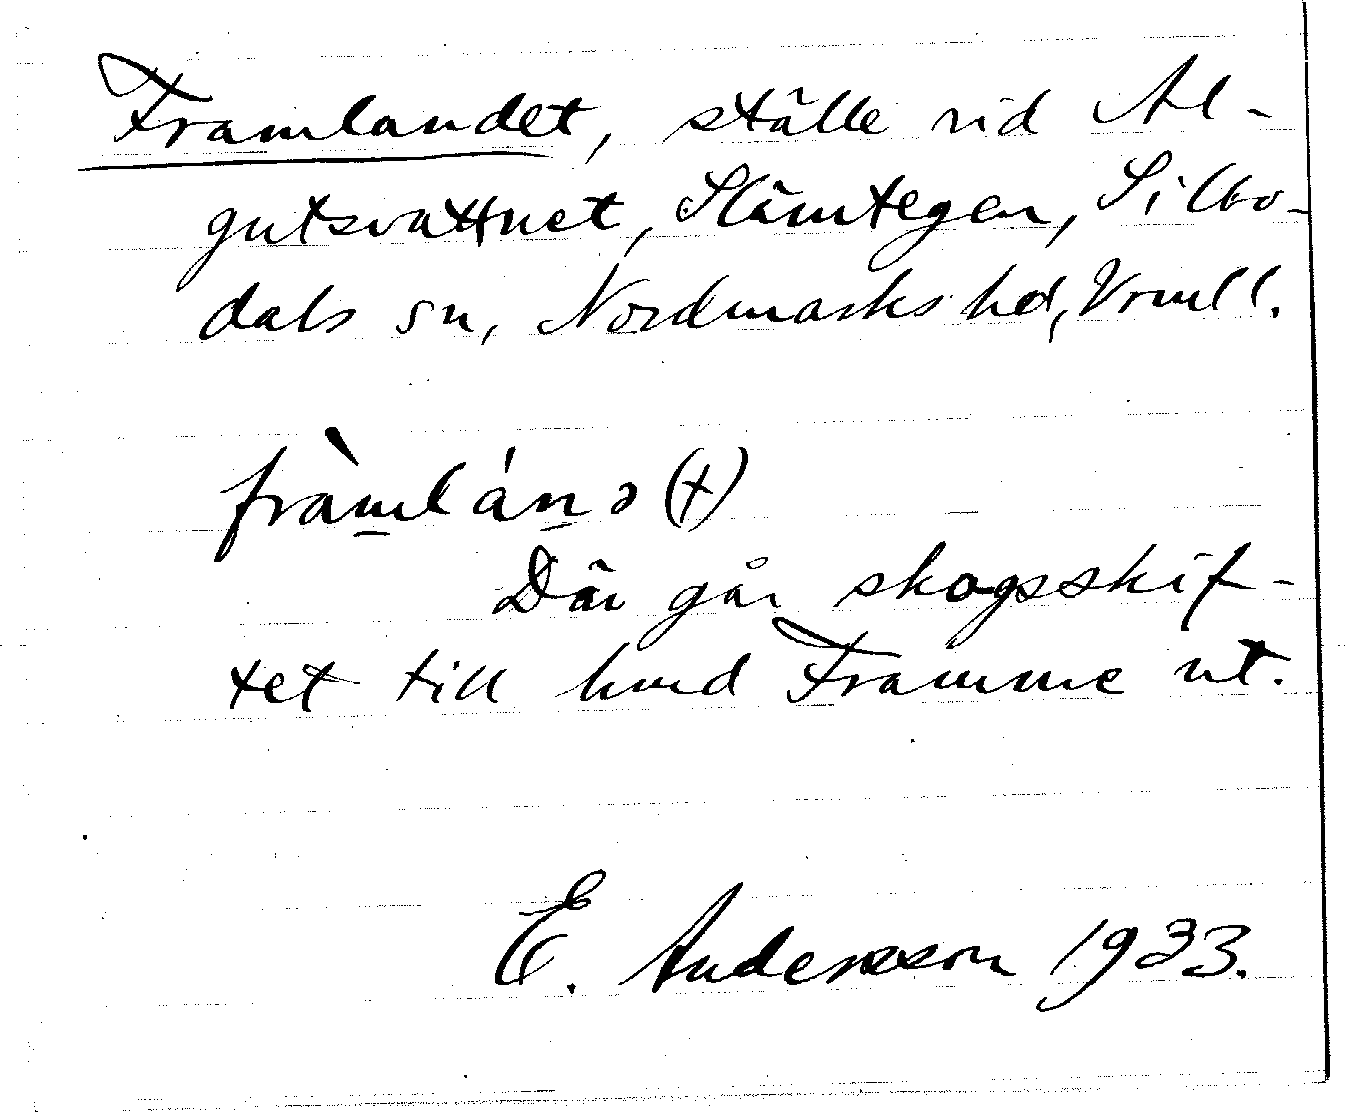 Framlandet, ställe vid Al-
gutsvattnet, Slämtegen, Silbo-
dals sn, Nordmarks hd, Vrmll.
fràmlánə (+)
Där går skogsskif-
tet till hmd Framme ut.
E. Andersson 1933.